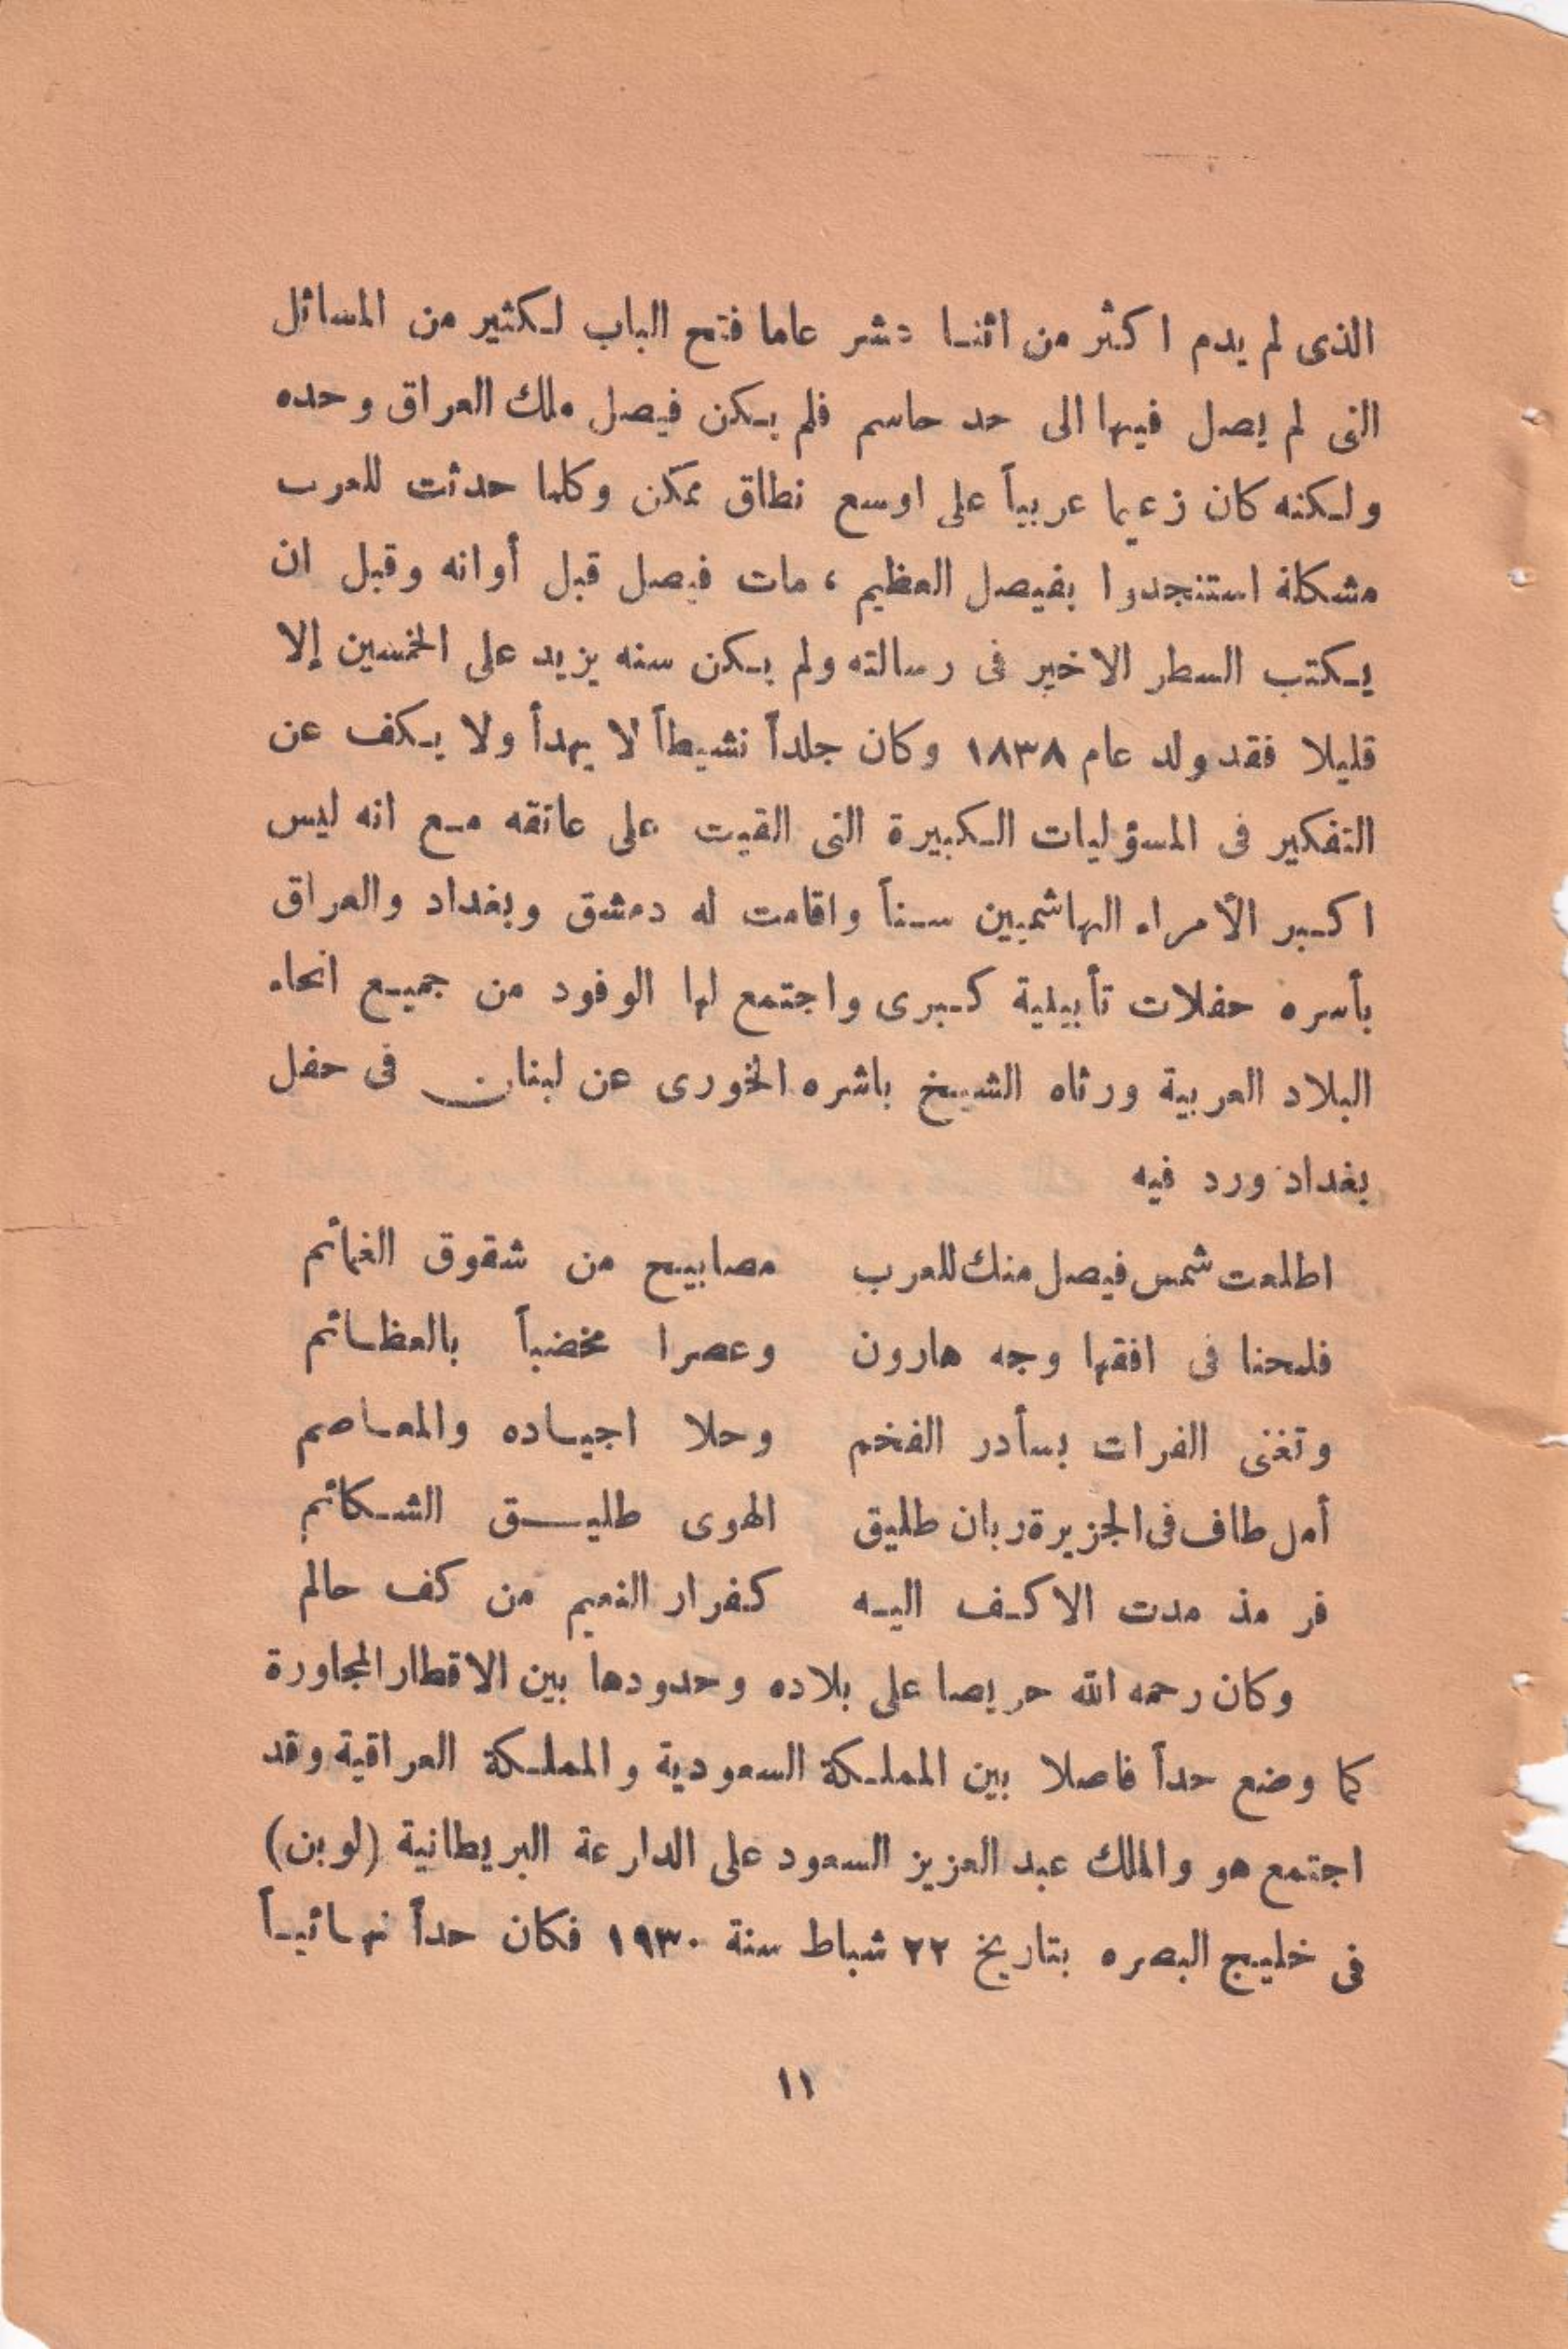 الذى لم يدم اكثر من اثنا عشر عاما فتح الباب لكثير من المسائل
التى لم يصل فيها الى حد حاسم فلم يكن فيصل ملك العراق وحده
ولكنه كان زعيما عربياً على اوسع نطاق ممكن وكلما حدثت للعرب
مشكلة استنجدوا بفيصل العظيم ، مات فيصل قبل أوانه وقبل ان
يكتب السطر الاخير فى رسالته ولم يكن سنه يزيد على الخمسين إلا
قليلا فقد ولد عام ١٨٣٨ وكان جلداً نشيطاً لا يهدأ ولا يكف عن
التفكير فى المسؤليات الكبيرة التى القيت على عاتقه مع انه ليس
اكبر الأمراء الهاشميين سناً واقامت له دمشق وبغداد والعراق
بأسره حفلات تأبيلية كبرى واجتمع لها الوفود من جميع انحاء
البلاد العربية ورثاه الشيخ باشره الخورى عن لبنان فى حفل
بغداد ورد فيه
اطلعت شمس فيصل منك للعرب مصابيح من شقوق الغمائم
فلمحنا فى افقها وجه هارون وعصرا مخضباً بالعظائم
وتغنى الفرات بسأدر الفخم وحلا اجياده والمعاصم
أمل طاف فى الجزيرة ربان طليق الهوى طليق الشكائم
فر مذ مدت الاكف اليه كفرار النعيم من كف حالم
وكان رحمه الله حريصا على بلاده وحدودها بين الاقطار المجاورة
كما وضع حداً فاصلا بين المملكة السعودية والمملكة العراقية وقد
اجتمع هو والملك عبد العزيز السعود على الدارعة البريطانية (لوبن)
فى خليج البصره بتاريخ ٢٢ شباط سنة ١٩٣٠ فكان حداً نهائياً
١١